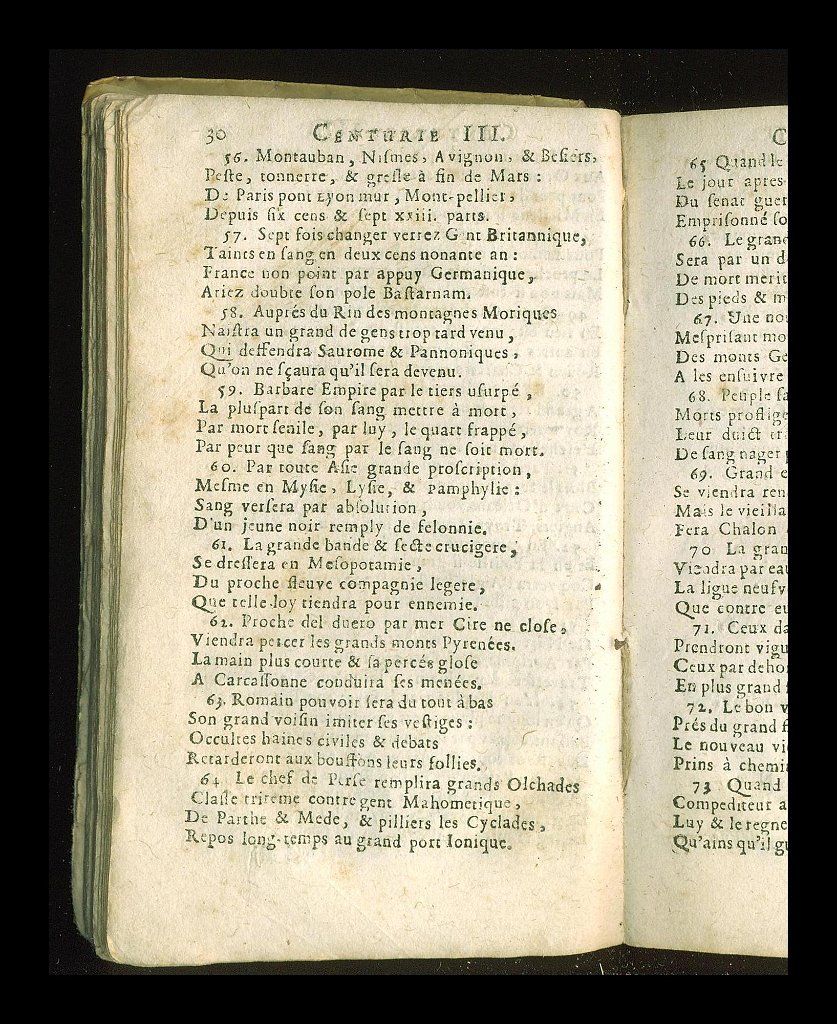 30 CENTURIE III.
56. Montauban, Niſmes, Avignon, & Beſiers,
Peſte, tonnerre, & greſle à fin de Mars :
De Paris pont Lyon mur, Mont-pellier,
Depuis ſix cens & ſept xxiii. parts.
57. Sept fois changer verrez G nt Britannique,
Taints en ſang en deux cens nonante an :
France non point par appuy Germanique,
Ariez doubte ſon pole Baſtarnam.
58. Auprés du Rin des montagnes Moriques
Naiſtra un grand de gens trop tard venu,
Qui deffendra Saurome & Pannoniques,
Qu'on ne ſçaura qu'il ſera devenu.
59. Barbare Empire par le tiers uſurpé,
La pluſpart de ſon ſang mettre à mort,
Par mort ſenile, par luy, le quart frappé,
Par peur que ſang par le ſang ne ſoit mort.
60. Par toute Aſie grande proſcription,
Meſme en Myſie, Lyſie, & Pamphylie :
Sang verſera par abſolution,
D'un jeune noir remply de felonnie.
61. La grande bande & ſecte crucigere,
Se dreſſera en Meſopotamie,
Du proche fleuve compagnie legere,
Que telle loy tiendra pour ennemie.
62. Proche del duero par mer Cire ne cloſe,
Viendra percer les grands monts Pyrenées.
La main plus courte & ſa percée gloſe
A Carcaſſonne conduira ſes menées.
63. Romain pouvoir ſera du tout à bas
Son grand voiſin imiter ſes veſtiges :
Occultes haines civiles & debats
Retarderont aux bouffons leurs follies.
64 Le chef de Perſe remplira grands Olchades
Claſſe trireme contre gent Mahometique,
De Parthe & Mede, & pilliers les Cyclades,
Repos long-temps au grand port Ionique.
C
65 Quand le
Le jour apres
Du ſenat
Empriſonné
66. Le
Sera par un
De mort
Des pieds &
67. Une
Meſpriſant
Des monts
A les enſuivre
68. Peuple
Morts
Leur duict
De ſang nager
69. Grand
Se viendra
Mais le
Fera Chalon
70 La
Viendra par
La ligue
Que contre
71. Ceux
Prendront
Ceux par
En plus grand
72. Le bon
Prés du grand
Le nouveau
Prins à
73 Quand
Compediteur
Luy & le regne
Qu'ains qu'il